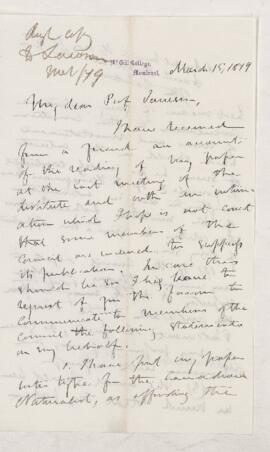 McGill College,
Montreal.
March 15, 1879
My dear Prof
I have received
from a friend an account
of the reading of my paper
at the last meeting of the
Institute and with an intim-
ation which I hope is not correct
that some members of the
Council are inclined to suppress
its publication. In case this
should be so I beg leave to
request of you the favour to
communicate to members of the
the following statements
on my behalf.
1. I have put my paper
into type for the Canadian
Naturalist, as affording the